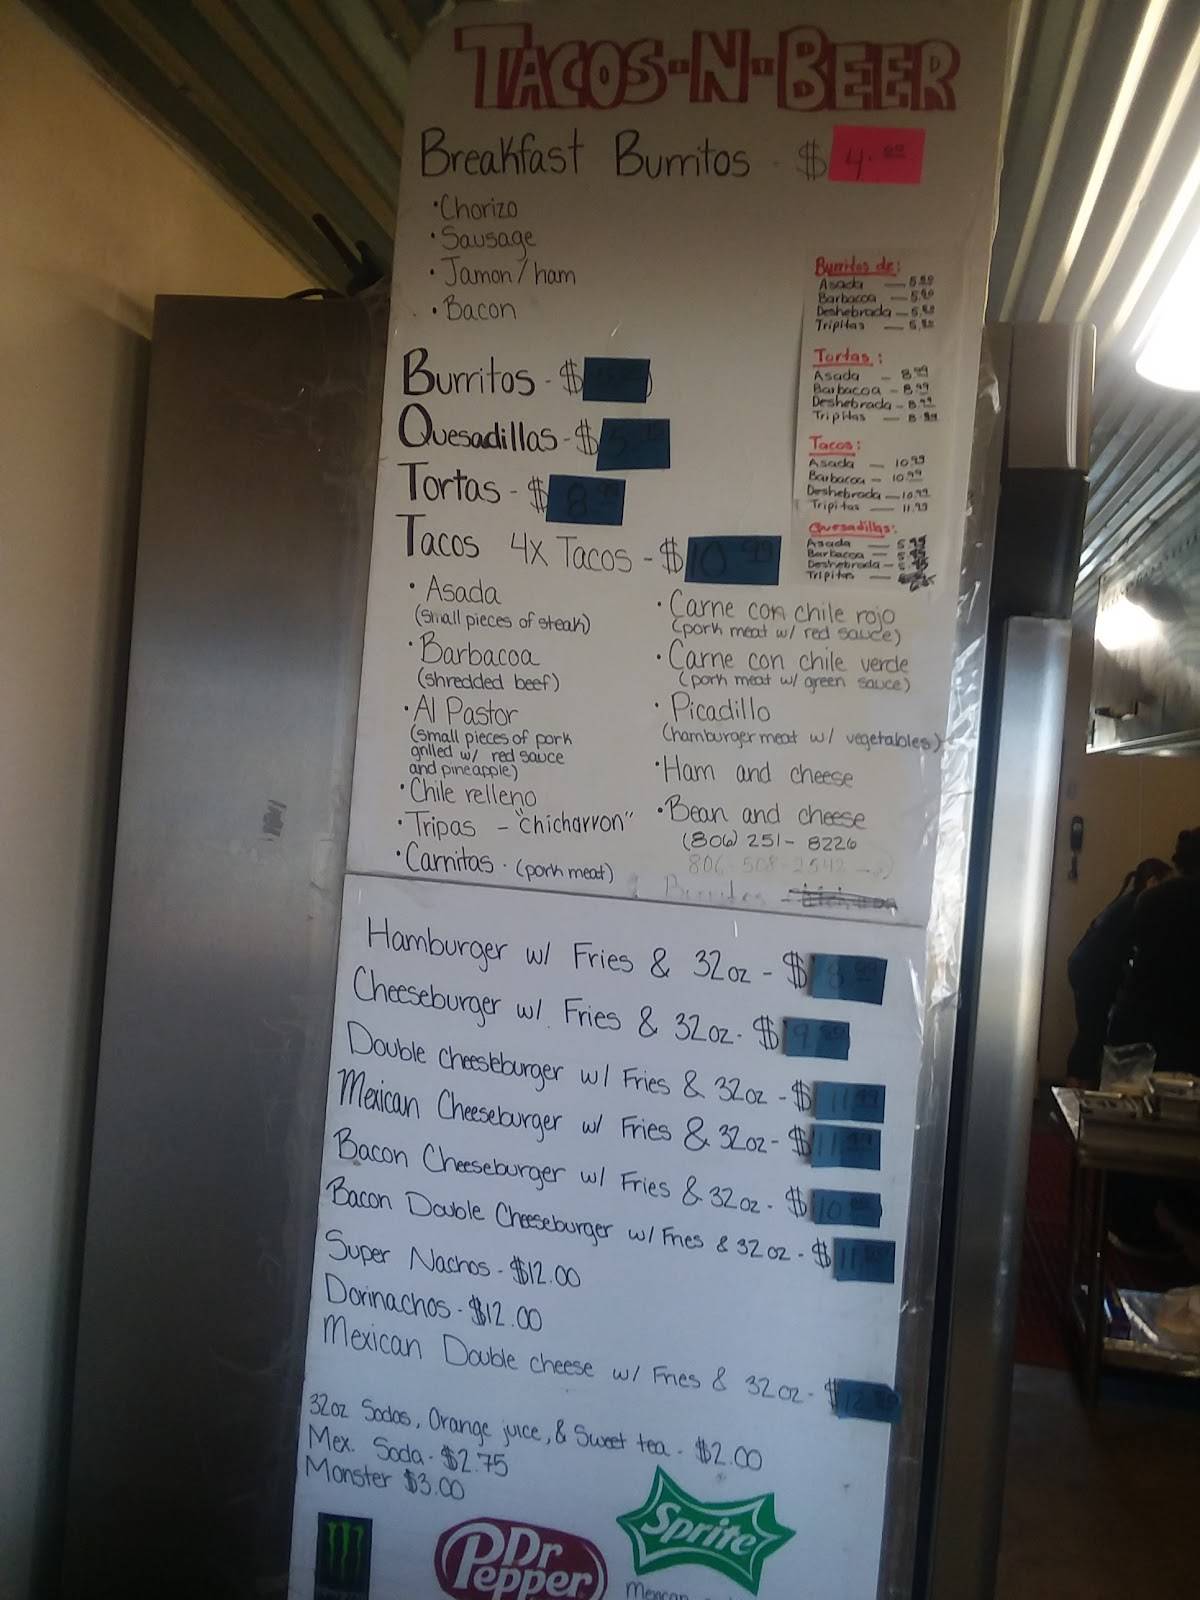 TACOS-N-BEER
Breakfast Burritos - $ 4.
• Chorizo
• Sausage
• Jamon/ham
• Bacon
Burritos - $
Quesadillas - $ 5.
Tortas - $ 8.99
Tacos 4x Tacos - $ 10.99
• Asada
(small pieces of steak)
• Barbacoa
(shredded beef)
• Al Pastor
(small pieces of pork
grilled w/ red sauce
and pineapple)
• Chile relleno
• Tripas - "chicharron"
• Carnitas - (pork meat)
• Carne con chile rojo
(pork meat w/ red sauce)
• Carne con chile verde
(pork meat w/ green sauce)
• Picadillo
(hamburger meat w/ vegetables)
• Ham and cheese
• Bean and cheese
(806) 251-8226
806-508-2542
Burritos
Burritos de:
Asada — 5.
Barbacoa — 5.
Deshebrada — 5.
Tripitas — 5.
Tortas:
Asada — 8.99
Barbacoa — 8.99
Deshebrada — 8.99
Tripitas — 8.99
Tacos:
Asada — 10.99
Barbacoa — 10.99
Deshebrada — 10.99
Tripitas — 11.99
Quesadillas:
Asada — 5.
Barbacoa —
Deshebrada —
Tripitas —
Hamburger w/ Fries & 32oz - $ 8.99
Cheeseburger w/ Fries & 32oz - $ 9.
Double cheeseburger w/ Fries & 32oz - $ 11.99
Mexican Cheeseburger w/ Fries & 32oz - $ 11.99
Bacon Cheeseburger w/ Fries & 32oz - $ 10.
Bacon Double Cheeseburger w/ Fries & 32oz - $ 11.
Super Nachos - $12.00
Dorinachos - $12.00
Mexican Double cheese w/ Fries & 32oz - $ 12.
32oz Sodas, Orange juice, & Sweet tea - $2.00
Mex. Soda - $2.75
Monster $3.00
Dr Pepper
Sprite
Mexican